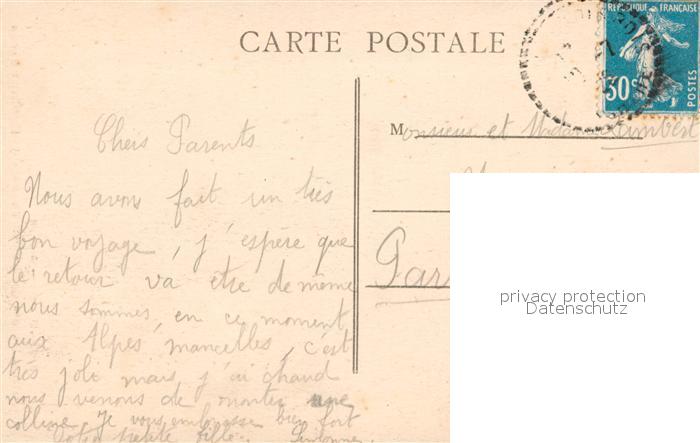 CARTE POSTALE
RÉPUBLIQUE FRANÇAISE
30c
POSTES
Chers Parents
Nous avons fait un très
bon voyage, j'espère que
le retour va etre de même
nous sommes, en ce moment
aux Alpes mancelles, c'est
très joli mais j'ai chaud
nous venons de monter une
colline je vous embrasse bien fort
Votre petite fille. Simonne
Monsieur et Madame Lambert
Par
privacy protection
Datenschutz